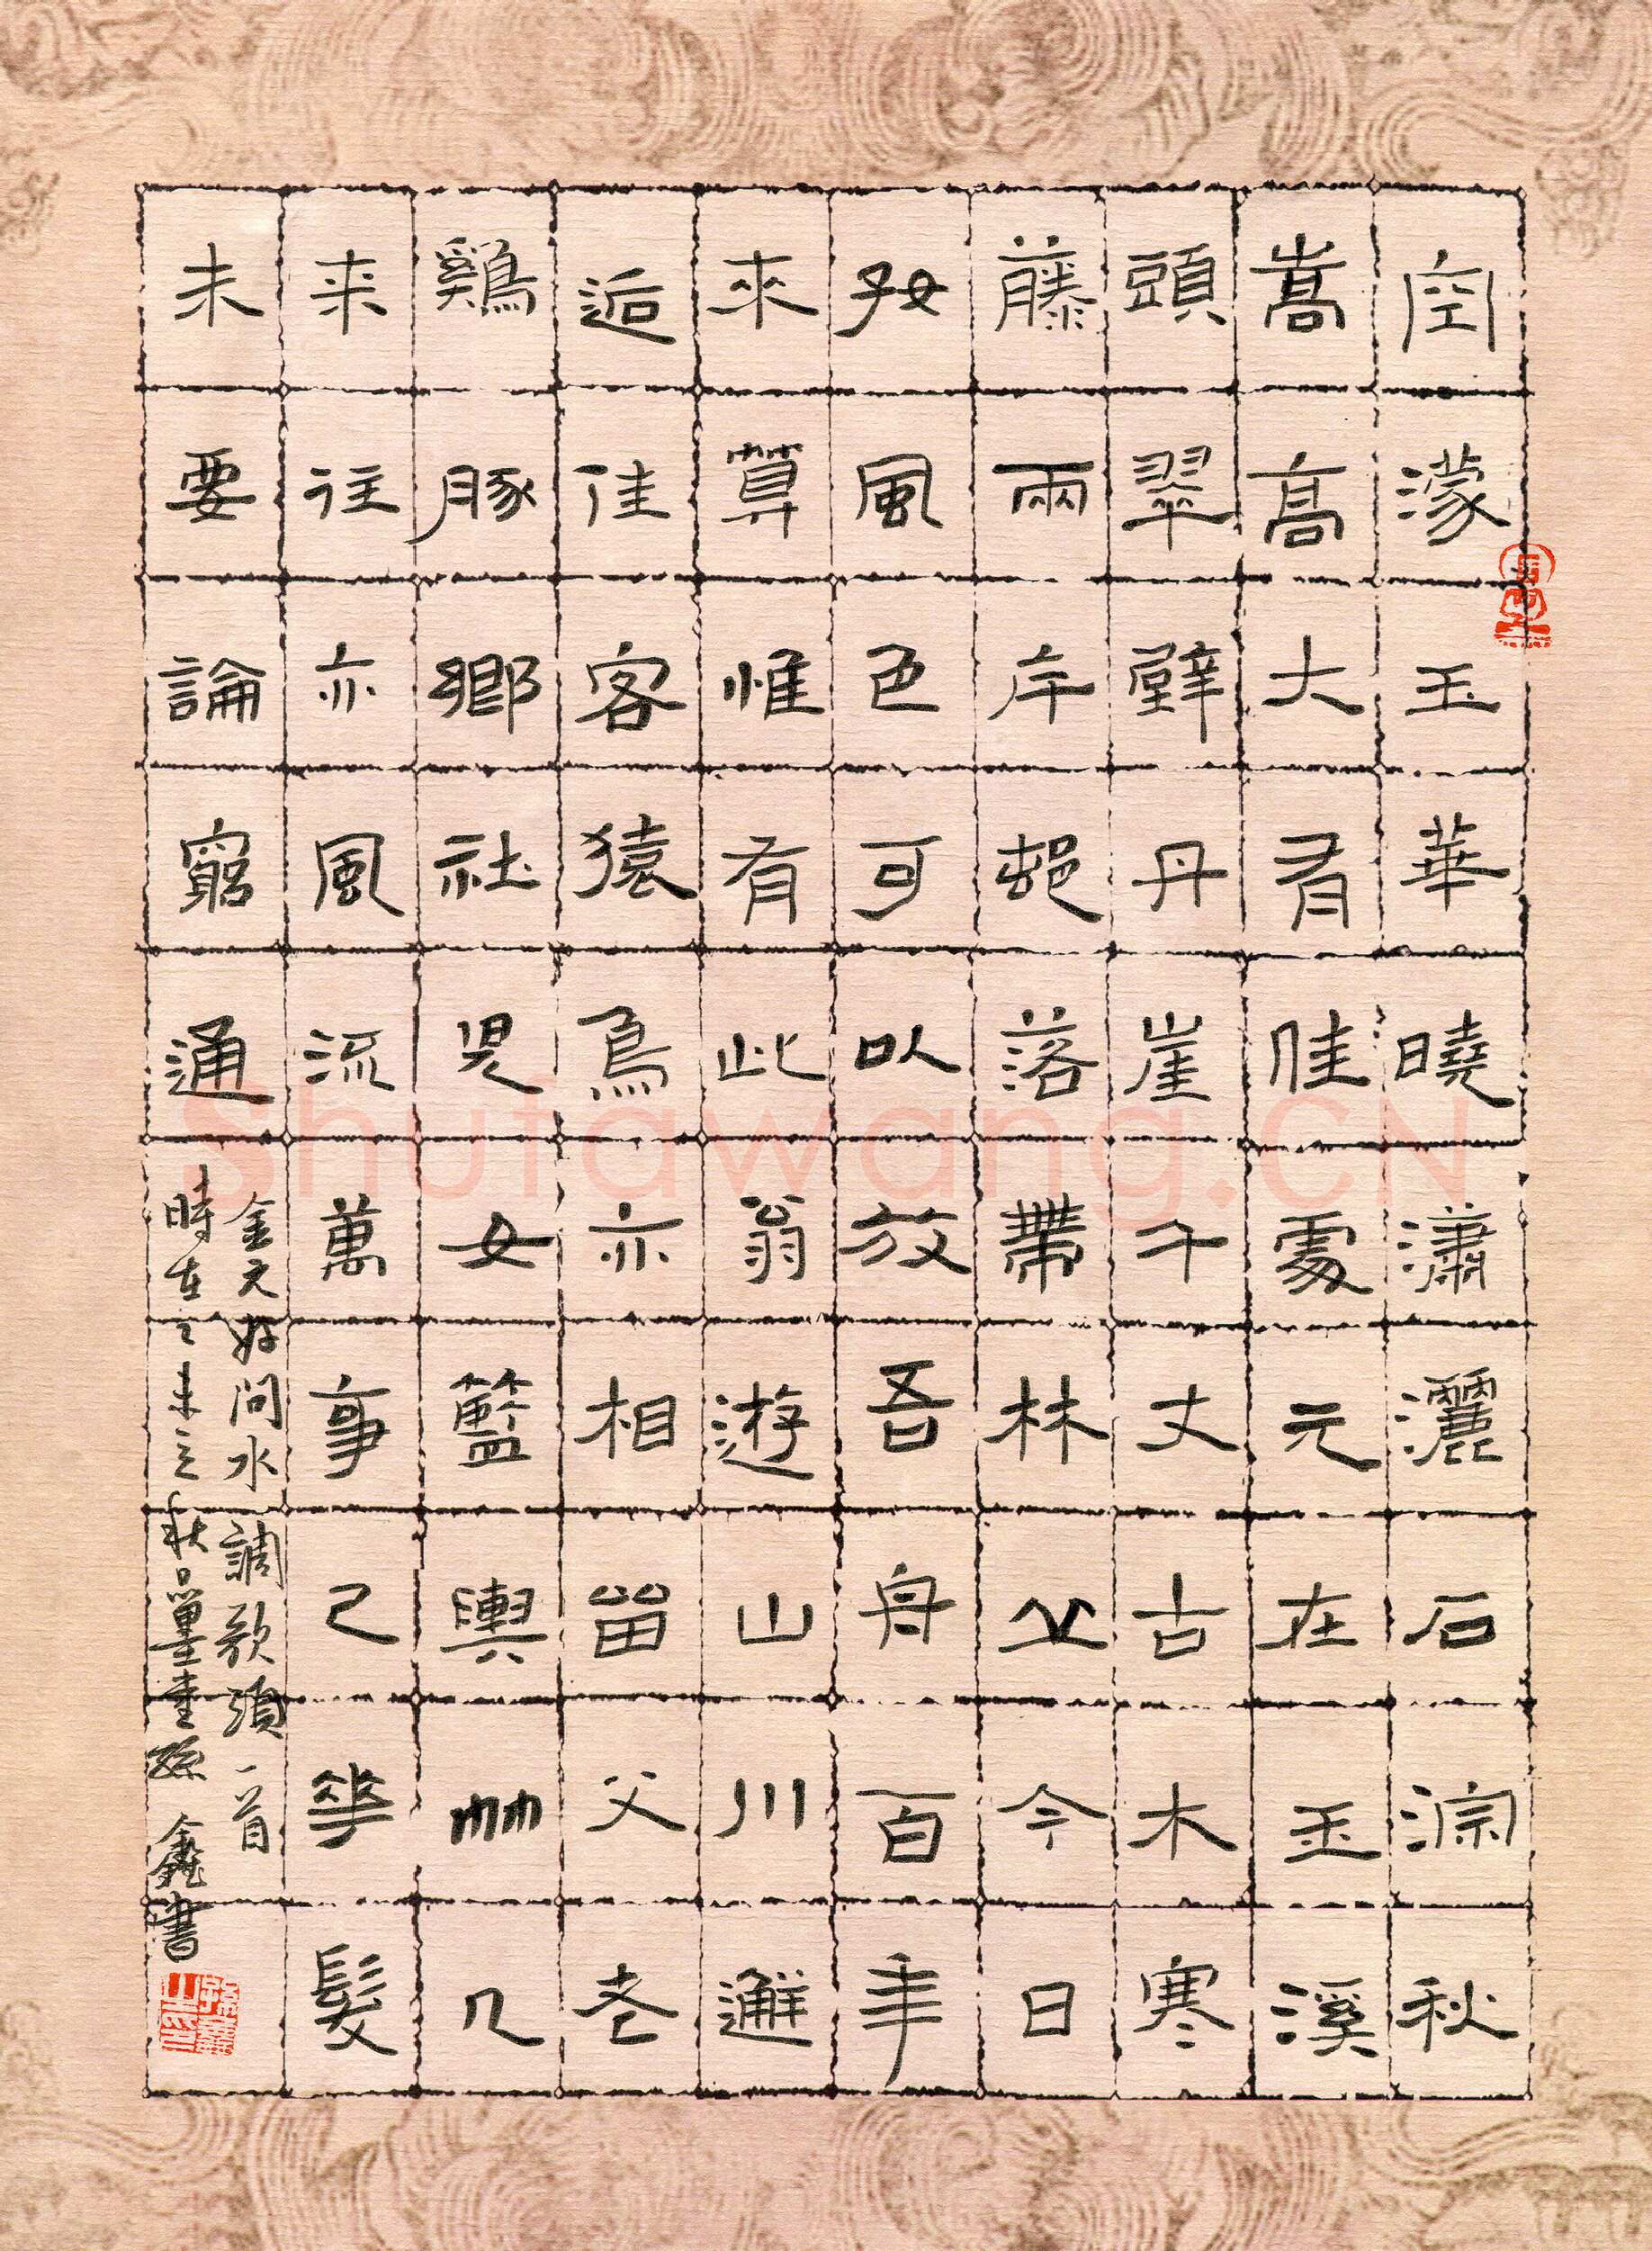 空濛玉華曉瀟灑石淙秋
嵩高大有佳處元在玉溪
頭翠壁丹崖千丈古木寒
藤兩岸邨落帶林丘今日
好風色可以放吾舟百年
來算惟有此翁遊山川邂
逅佳客猿鳥亦相留父老
鷄豚鄉社兒女籃輿竹几
来往亦風流萬事已華髮
未要論窮通
金元好问水調歌頭一首
時在乙未之秋日堂孫鑫書
Shufawang.CN